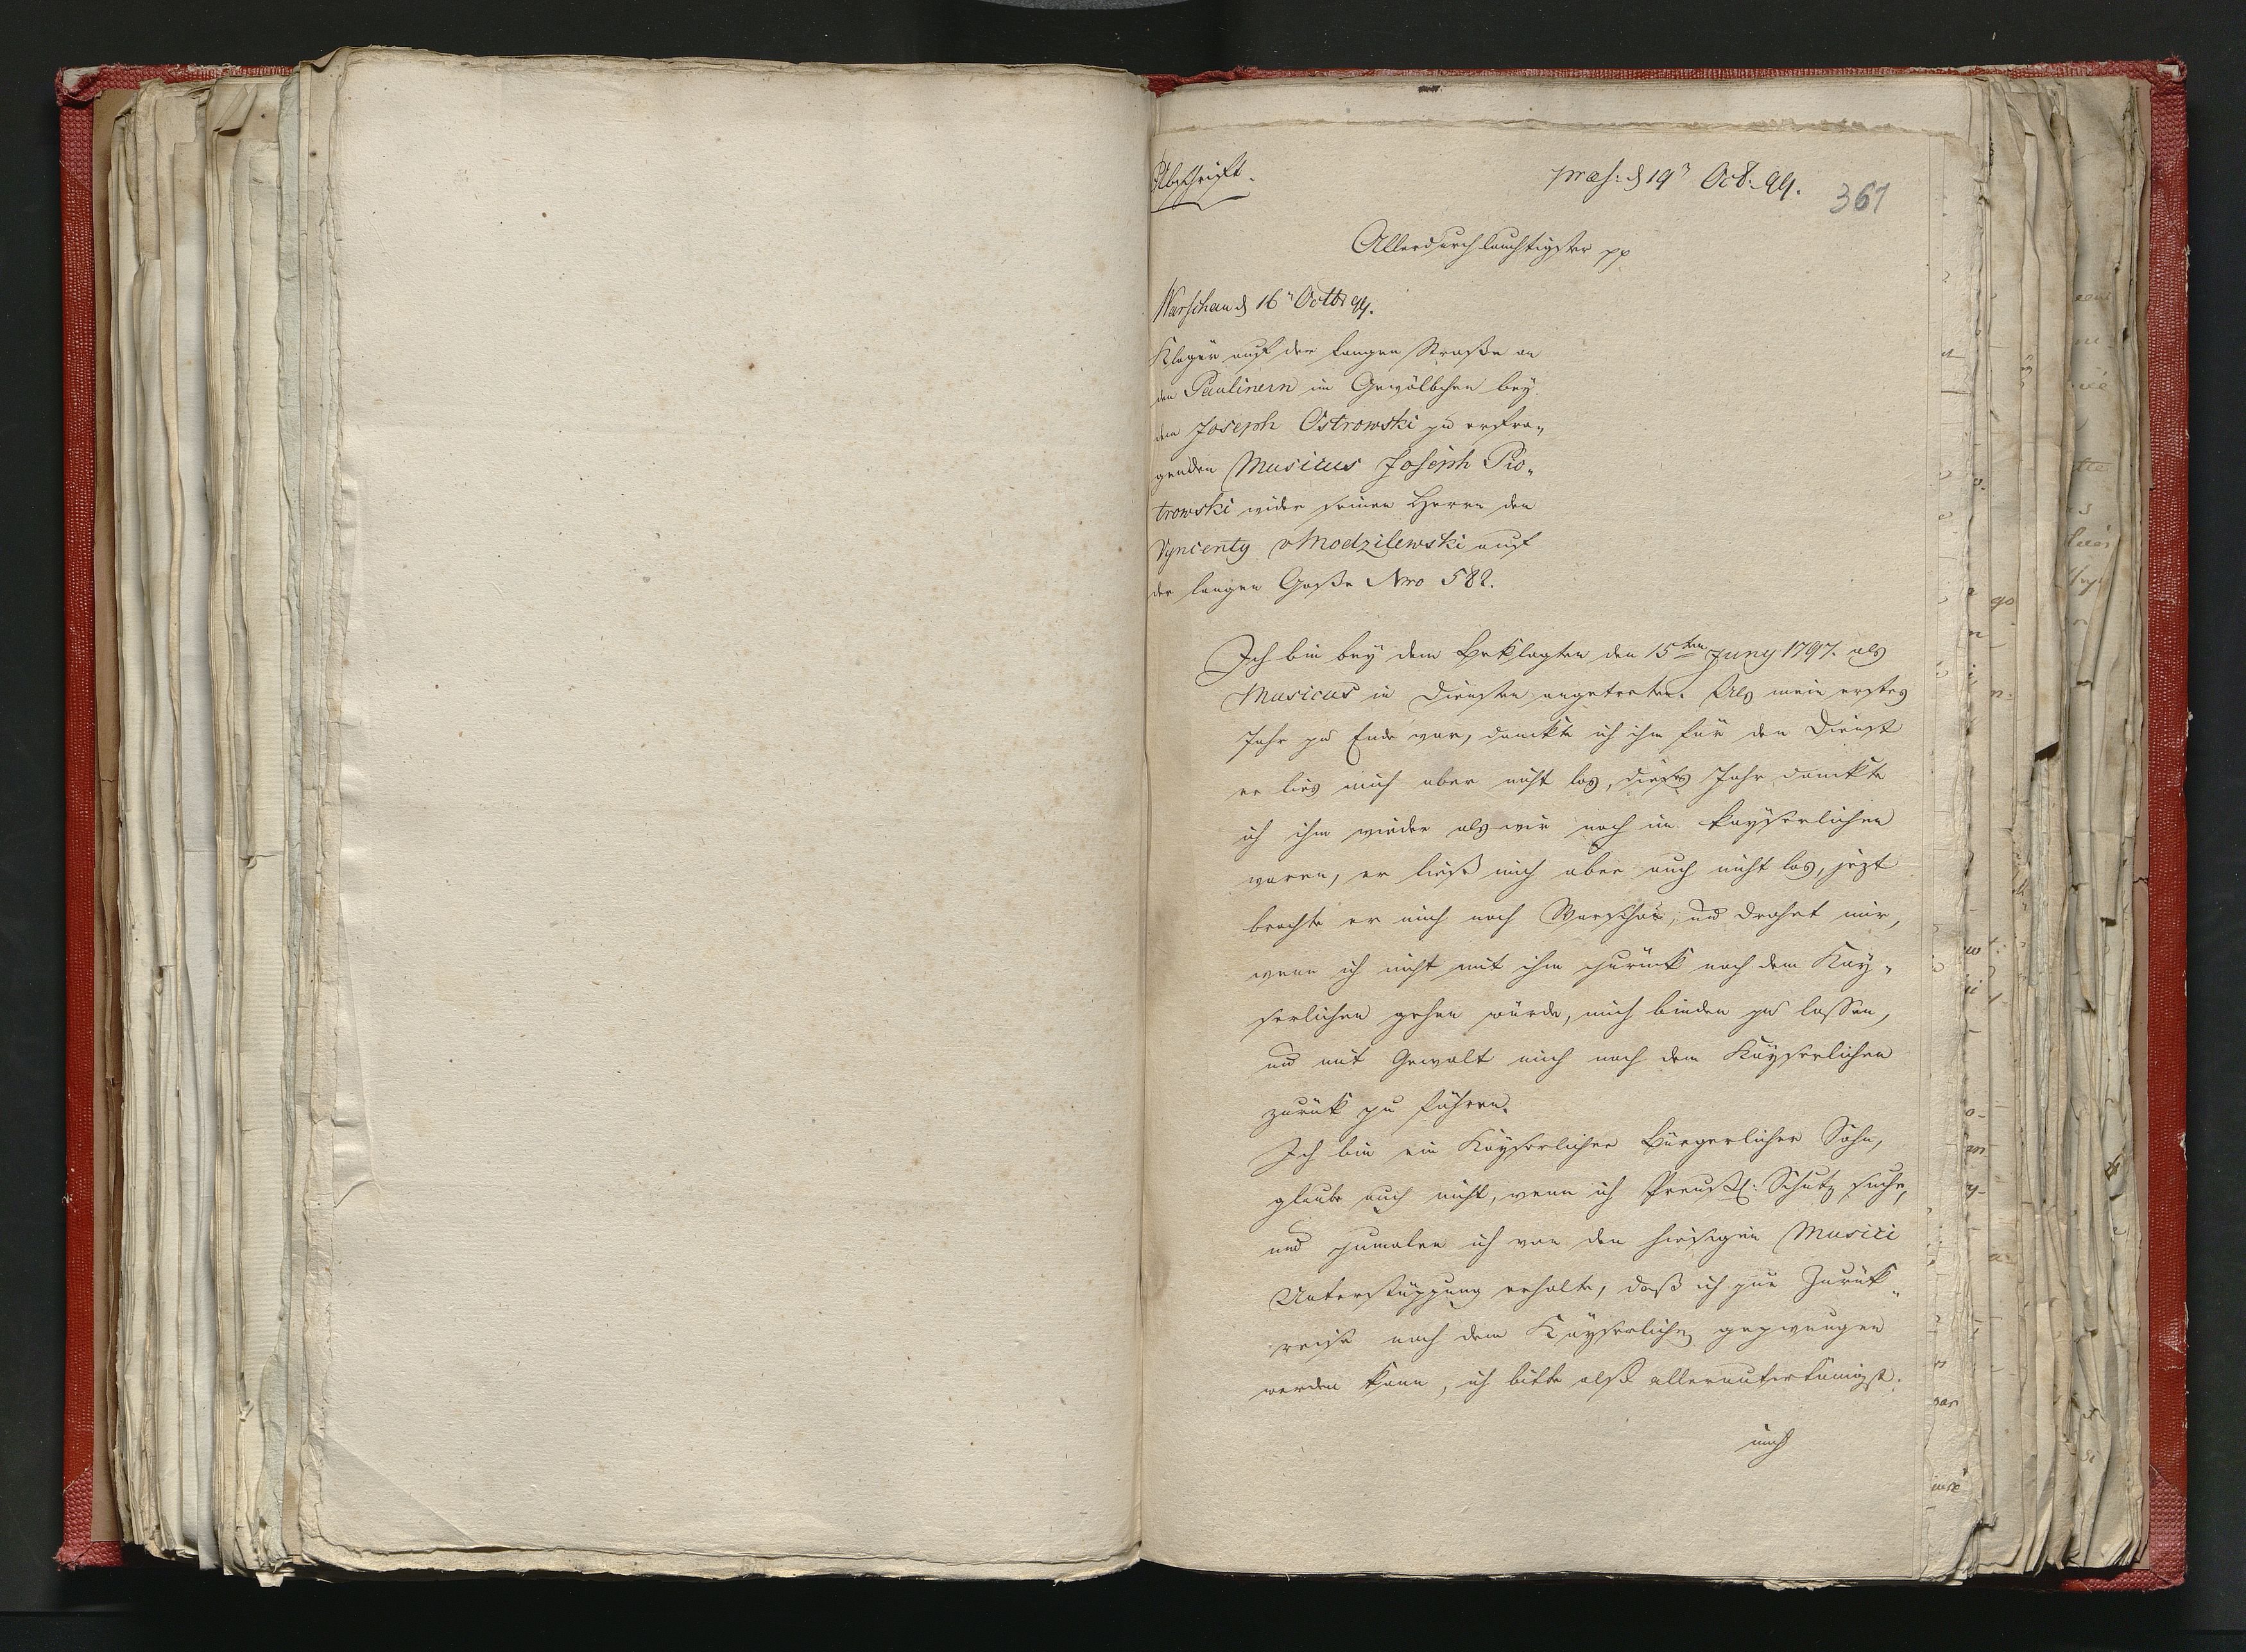 Abschrift.
præs: d 19ⁿ Oct: 99.
361
Allerdurchlauchtigster pp
Warschau d 16ⁿ Octbr 99.
Klagen auf der langen Straße an
den Paulinern im Gewölbchen bey
dem Joseph Ostrowski zu erfra„
genden Musicus Joseph Pio„
trowski wider seinen Herrn den
Vyncenty v Modzilewski auf
der langen Gaße Nro 582.
Ich bin bey dem Beklagten den 15ten Juny 1797. als
Musicus in Diensten angetreten. Als mein erstes
Jahr zu Ende war, danckte ich ihm für den Dienst
er lies mich aber nicht los, dieses Jahr danckte
ich ihm wieder als wir noch im Kayserlichen
waren, er ließ mich aber auch nicht los, jezt
brachte er mich nach Warschau, und drohet mir,
wenn ich nicht mit ihm zurück nach dem Kay„
serlichen gehen würde, mich binden zu lassen,
und mit Gewalt mich nach dem Kayserlichen
zurück zu führen.
Ich bin ein Kayserlicher Bürgerlicher Sohn,
glaube auch nicht, wenn ich Preußl: Schutz suche,
und zumalen ich von den hiesigen Musici
Unterstüzzung erhalte, daß ich zur Zurük„
reise nach dem Kayserlichen gezwungen
werden kann, ich bitte alß allerunterthänigst.
mich